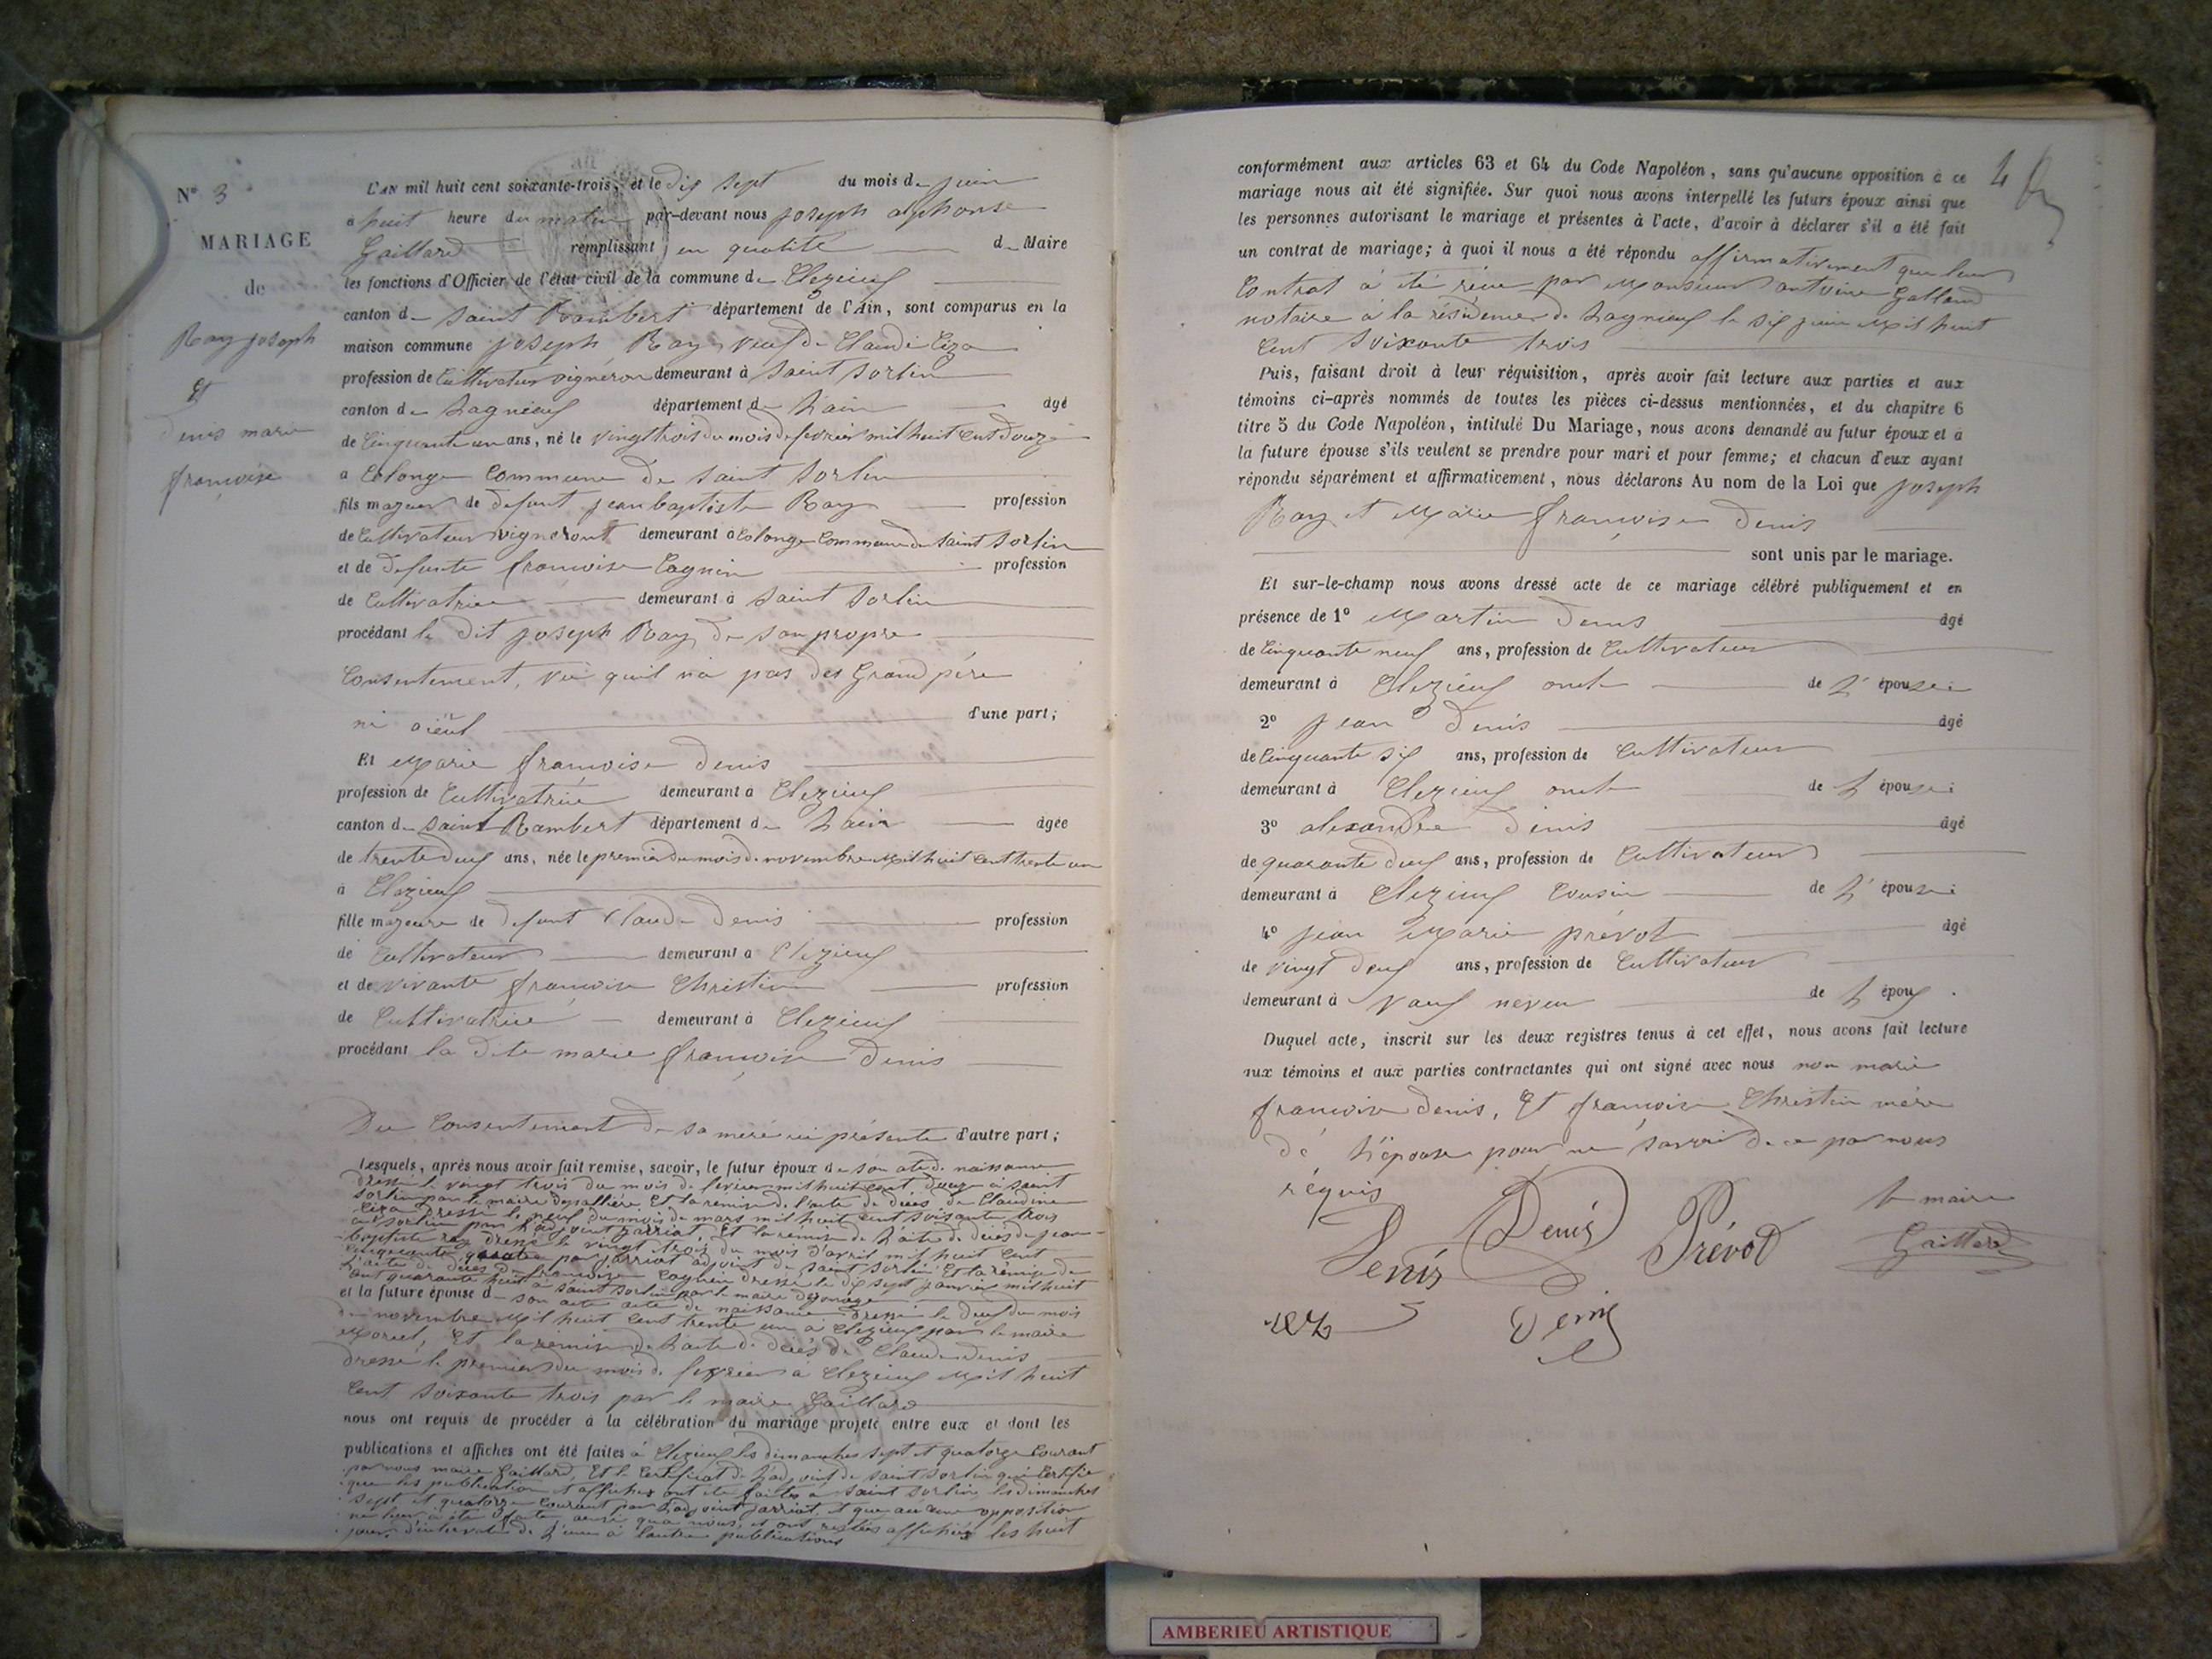 N° 3
MARIAGE
de
Ray Joseph
Et
Denis marie
françoise
L'AN mil huit cent soixante-trois, et le dix sept du mois de juin
a huit heure du matin par-devant nous joseph alphonse
Gaillard remplissant en qualité de Maire
les fonctions d'Officier de l'état civil de la commune de Clezieux
canton de Saint Rambert département de l'Ain, sont comparus en la
maison commune joseph Ray veuf de Claudi Ciza
profession de Cultivateur vigneron demeurant à Saint Sorlin
canton de Lagnieux département de Lain âgé
de Cinquante un ans, né le vingt trois du mois de fevrier mil huit Cent Douze
a Colonge Commune de Saint Sorlin
fils mageur de defunt jean baptiste Ray profession
de Cultivateur vigneront demeurant à Colonge Commune de Saint Sorlin
et de defunte françoise Cognin profession
de Cultivatrice demeurant à Saint Sorlin
procédant le dit joseph Ray de son propre
Consentement, vu quil n'a pas des Grand père
ni aïeul d'une part;
Et Marie françoise Denis
profession de Cultivatrice demeurant à Clezieux
canton de Saint Rambert département de Lain âgée
de trente deux ans, née le premier du mois de novembre mil huit Cent trente un
à Clezieux
fille mageure de defunt Claude Denis profession
de Cultivateur demeurant a Clezieux
et de vivante françoise Christin profession
de Cultivatrice demeurant à Clezieux
procédant la dite marie françoise Denis
Du Consentement de sa mère ici présente d'autre part;
Lesquels, après nous avoir fait remise, savoir, le futur époux de son ate de naissance
dressé le vingt trois du mois de fevrier mil huit cent douze à saint
Sorlin par le maire Et la remise de l'acte de décés de Claudine
Ciza dressé le neuf du mois de mars mil huit cent soixante trois
a St Sorlin par l'adjoint jarriat, Et la remise de l'acte de décés de jean
baptiste ray dressé le vingt trois du mois d'avril mil huit Cent
cinquante par jarriat adjoint de saint Sorlin Et la remise de
l'acte de décés de françoise Cognin dressé le dix sept janvier mil huit
cent quarante huit à saint Sorlin par le maire
et la future épouse de son acte acte de naissance dressé le deux du mois
de novembre Mil huit Cent trente un à Clezieux par le maire
Morel, Et la remise de l'acte de décés de Claude Denis
dressé le premier du mois de fevrier à Clezieux Mil huit
Cent soixante trois par le maire Gaillard
nous ont requis de procéder à la célébration du mariage projeté entre eux et dont les
publications et affiches ont été faites à Clezieux les dimanches sept et quatorze Courant
par nous maire Gaillard, Et le Certificat de l'adjoint de saint Sorlin qui Certifie
que les publication et affiches ont été faites a saint Sorlin les dimanches
sept et quatorze Courant par l'adjoint jarriat, et que aucune opposition
ne leur a été faite ainsi qua nous, et ont restées affichées les huit
jours d'intervalle de l'une à l'autre publications
4
conformément aux articles 63 et 64 du Code Napoléon, sans qu'aucune opposition à ce
mariage nous ait été signifiée. Sur quoi nous avons interpellé les futurs époux ainsi que
les personnes autorisant le mariage et présentes à l'acte, d'avoir à déclarer s'il a été fait
un contrat de mariage; à quoi il nous a été répondu affirmativement que leur
Contrat à été réçu par Monsieur antoine Galland
notaire à la résidence de Lagnieux le six juin Mil huit
Cent Soixante trois
Puis, faisant droit à leur réquisition, après avoir fait lecture aux parties et aux
témoins ci-après nommés de toutes les pièces ci-dessus mentionnées, et du chapitre 6
titre 5 du Code Napoléon, intitulé Du Mariage, nous avons demandé au futur époux et à
la future épouse s'ils veulent se prendre pour mari et pour femme; et chacun d'eux ayant
répondu séparément et affirmativement, nous déclarons Au nom de la Loi que joseph
Ray et Marie françoise Denis
sont unis par le mariage.
Et sur-le-champ nous avons dressé acte de ce mariage célébré publiquement et en
présence de 1° Martin Denis âgé
de Cinquante neuf ans, profession de Cultivateur
demeurant à Clezieux oncle de L' épouse
2° jean Denis âgé
de Cinquante six ans, profession de Cultivateur
demeurant à Clezieux oncle de L' épouse
3° alexandre Denis âgé
de quarante deux ans, profession de Cultivateur
demeurant à Clezieux Cousin de L' épouse
4° jean Marie prévot âgé
de vingt deux ans, profession de Cultivateur
demeurant à Vaux neveu de L époux
Duquel acte, inscrit sur les deux registres tenus à cet effet, nous avons fait lecture
aux témoins et aux parties contractantes qui ont signé avec nous non marie
françoise Denis, Et françoise Christin mère
dé L'épouse pour ne savoir de ce par nous
réquis
Denis Denis Prévot le maire
Gaillard
Denis
AMBERIEU ARTISTIQUE